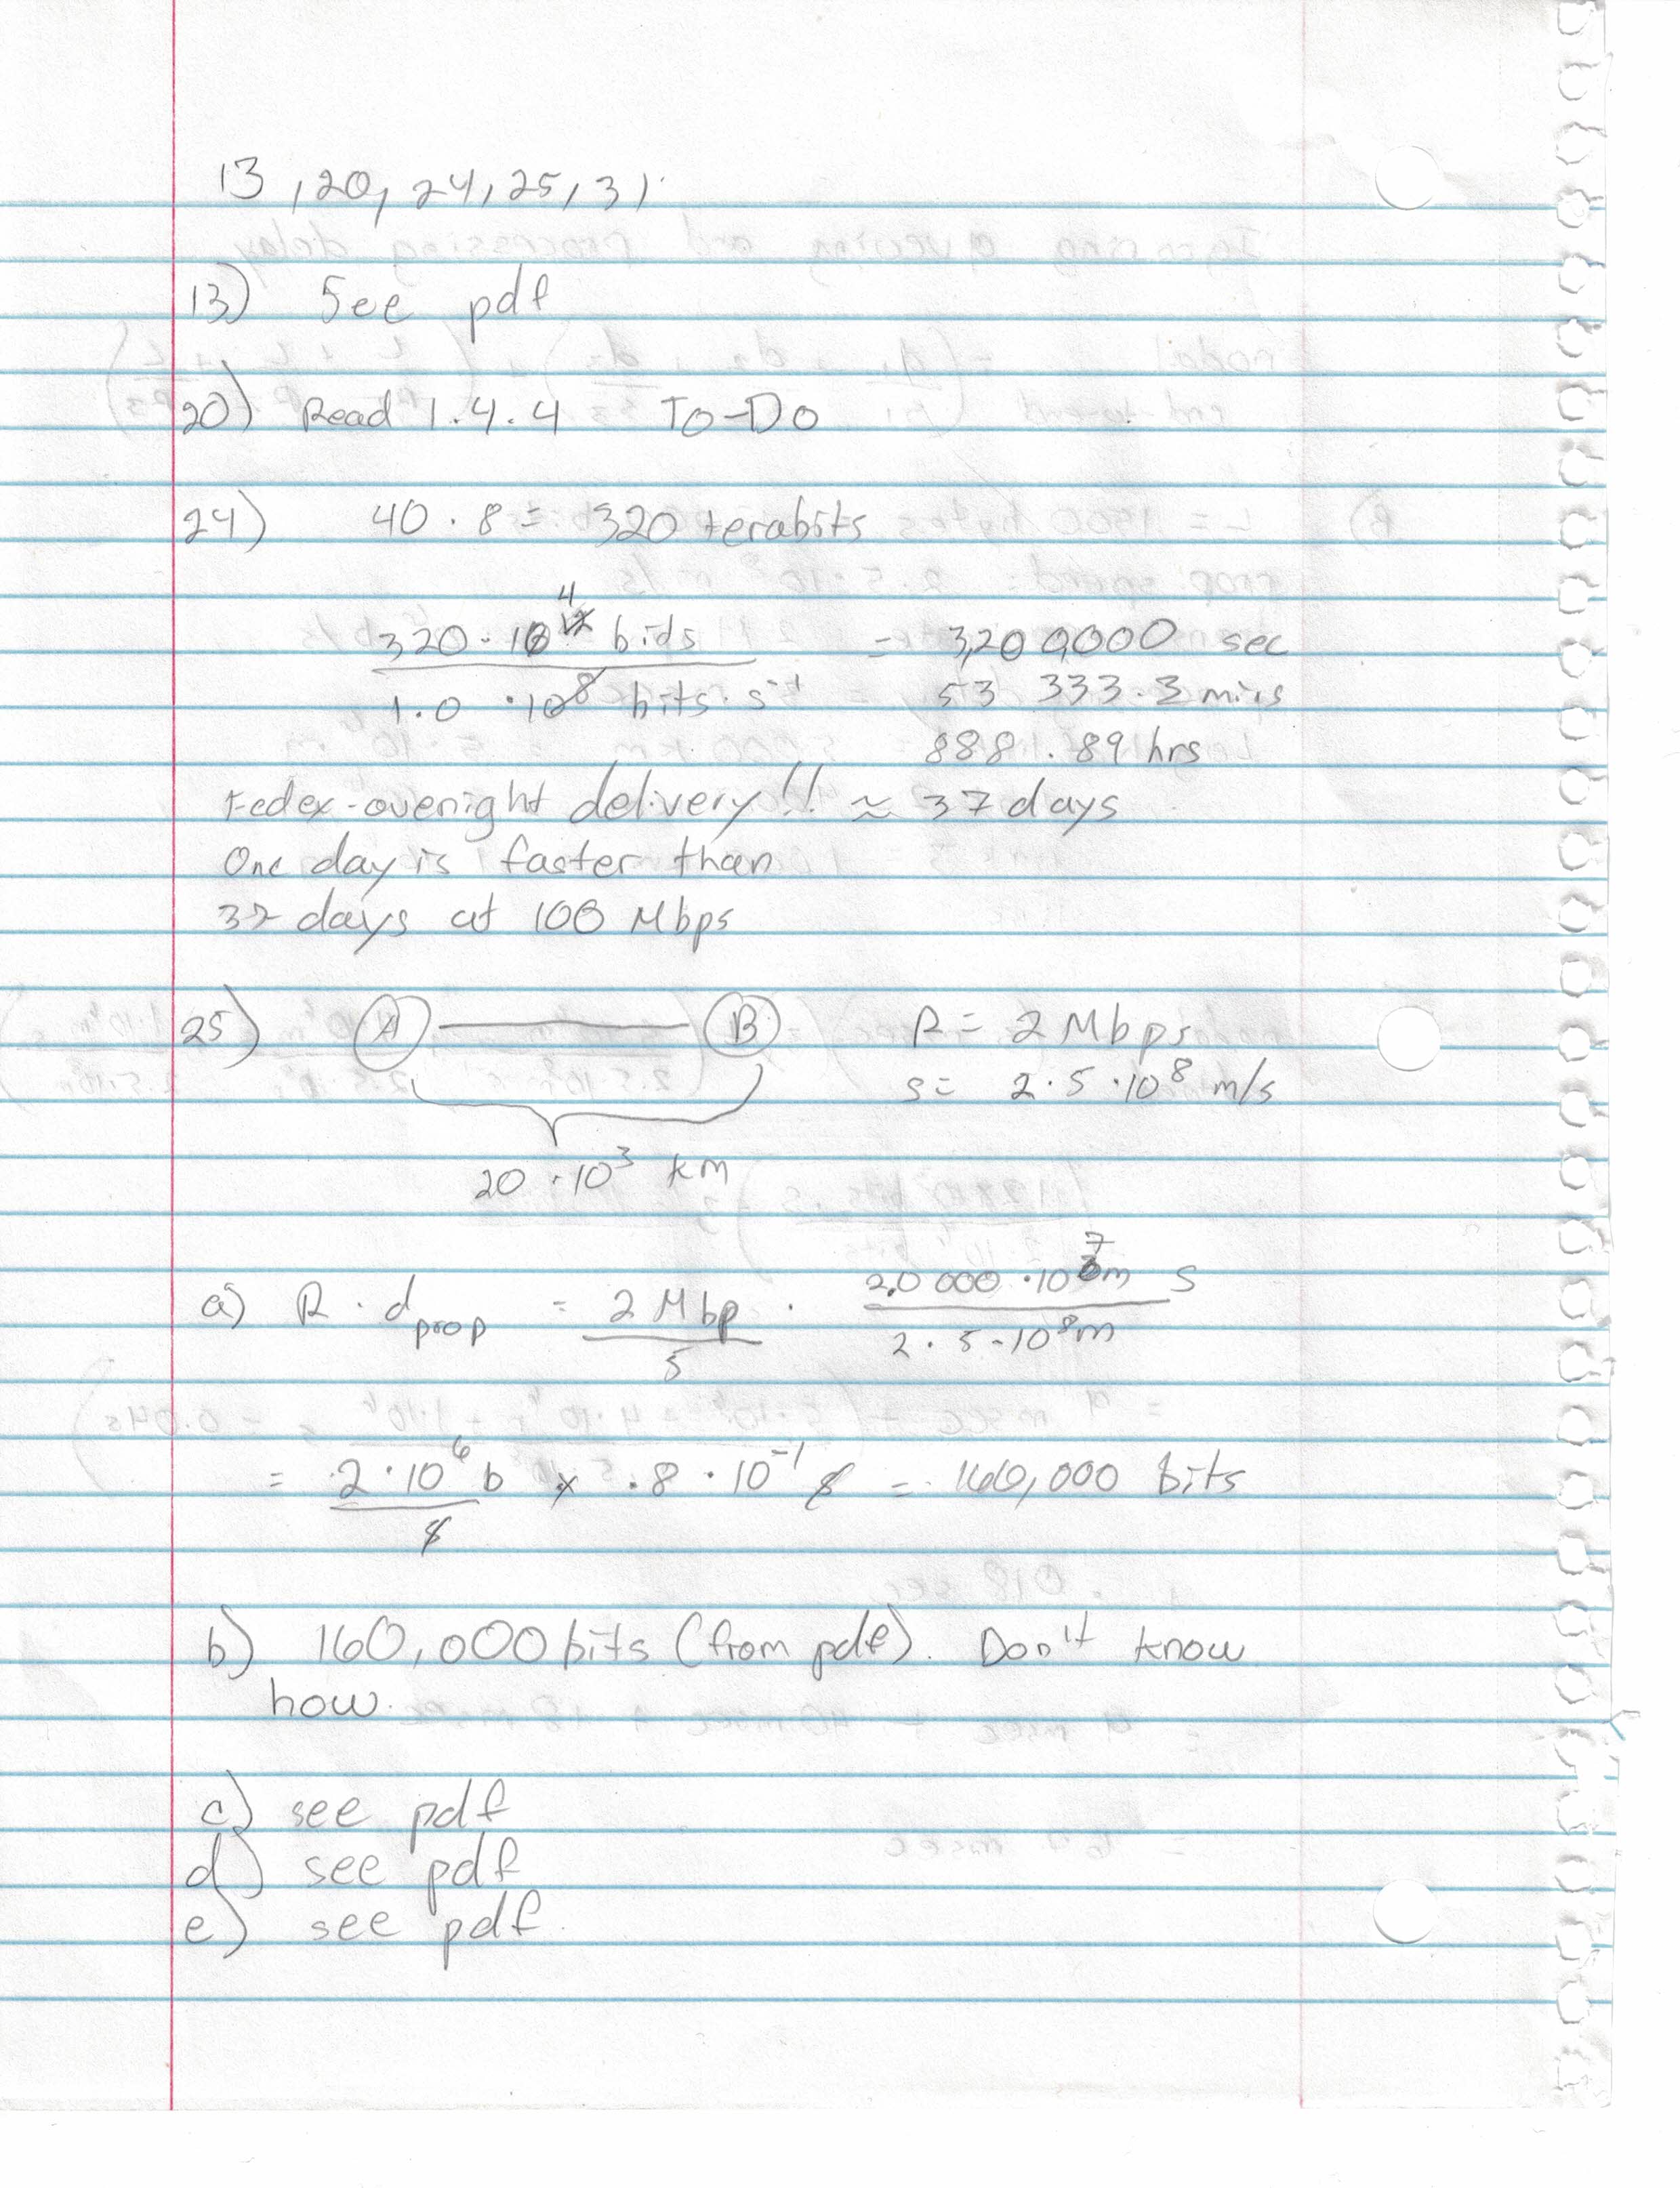 13, 20, 24, 25, 31
13) See pdf
20) Read 1.4.4 To-Do
24) 40 · 8 = 320 terabits
4
320 · 10 12 bids = 3,200,000 sec
1.0 · 10^8 bits · s^-1 53 333.3 mins
888.89 hrs
Fedex-overnight delivery!! ≈ 37 days
One day is faster than
37 days at 100 Mbps
25) A B R = 2 Mbps
s = 2.5 · 10^8 m/s
20 · 10^3 km
7
a) R · d prop = 2 Mbp / s · 2.0 000 · 10 m s / 2.5 · 10^8 m
= 2 · 10^6 b / s × .8 · 10^-1 s = 160,000 bits
b) 160,000 bits (from pdf). Don't know
how.
c) see pdf
d) see pdf
e) see pdf.